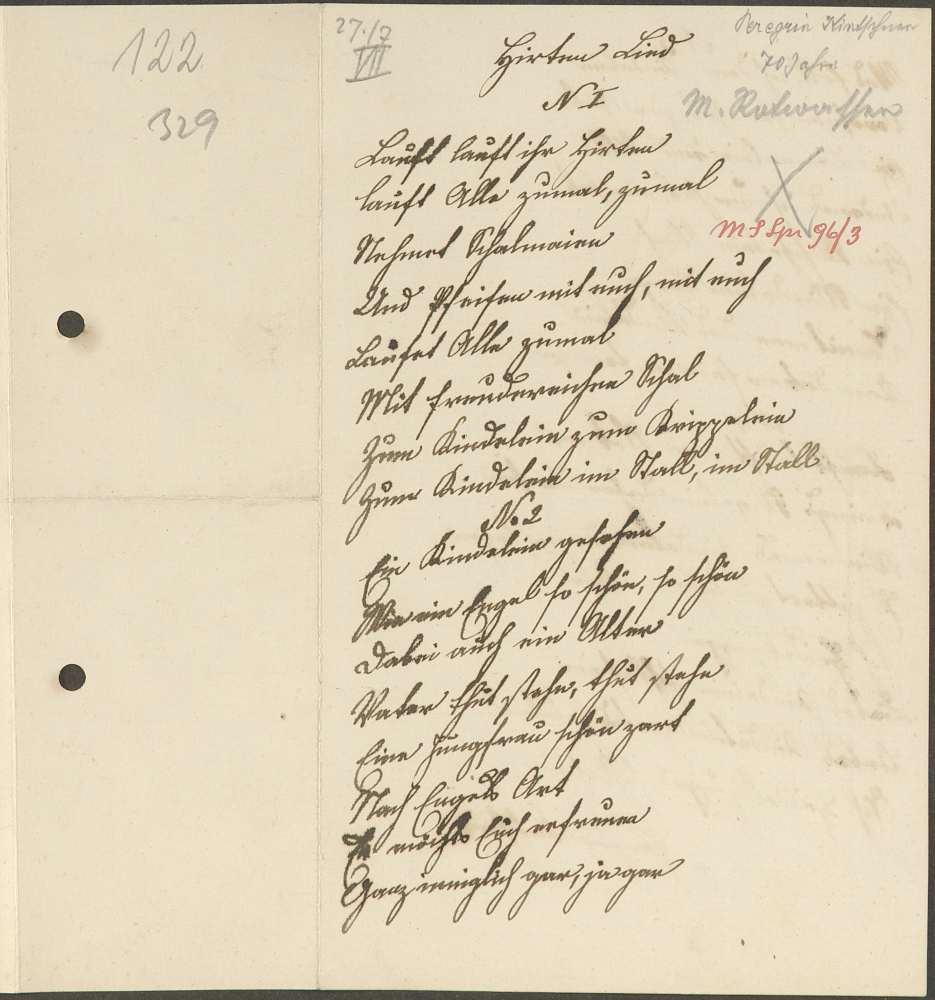 122
329
27./7
VII
Peregrin
70 Jahre
M. Rotwasser
MS Spr 96/3
Hirten Lied
N I
Lauft lauft ihr Hirten
lauft Alle zumal, zumal
Nehmet Schalmaien
Und Pfeifen mit euch, mit euch
Laufet Alle zumal
Mit freudereichen Schal
Zum Kindelein zum Krippelein
Zum Kindelein im Stall, im Stall
No 2
Ein Kindelein gesehen
Wie ein Engel so schön, so schön
Dabei auch ein Alter
Vater thut stehn, thut stehn
Eine Jungfrau schön zart
Nach Engels Art
Es möcht Euch erfreuen
Ganz inniglich gar, ja gar